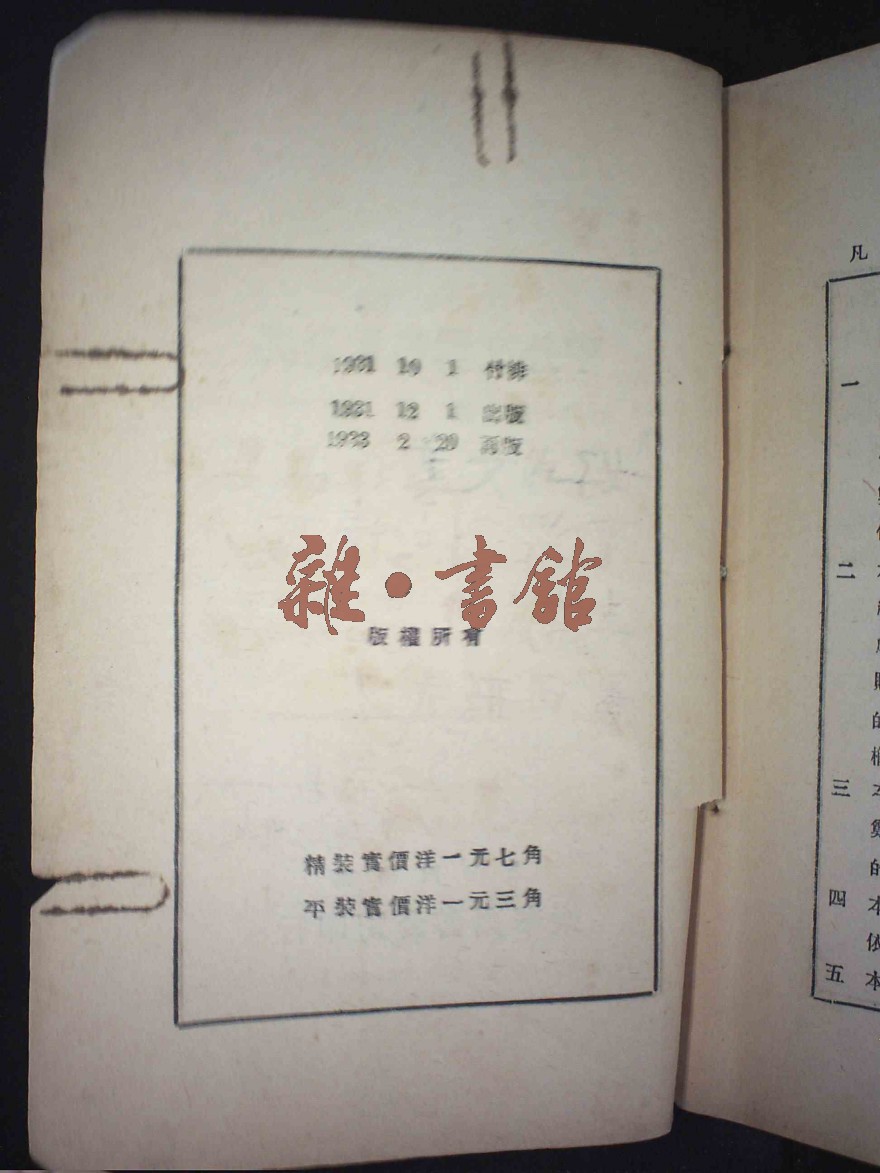 1931 10 1 付排
1931 12 1 出版
1933 2 20 再版
雜·書館
版權所有
精裝實價洋一元七角
平裝實價洋一元三角
凡
一
二
的
三
的
四 本
依
五 本